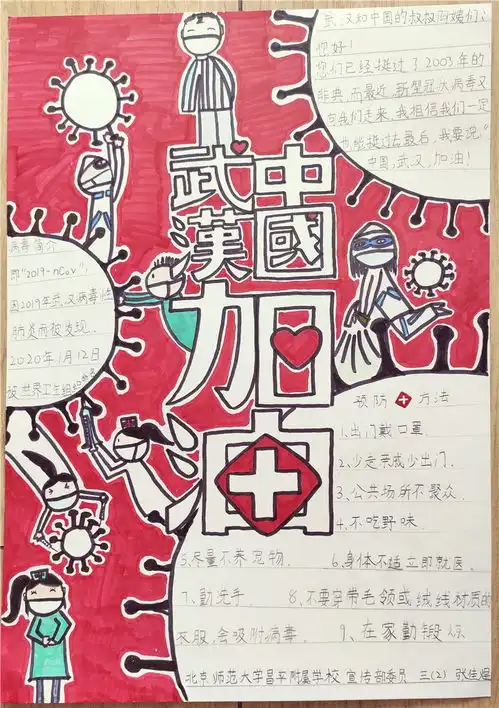 武汉和中国的叔叔阿姨们:
您好!
您们已经挺过了2003年的
非典,而最近,新型冠状病毒又
向我们走来,我相信我们一定
也能挺过去,最后,我要说"
中国,武汉,加油!
武漢
中國
加油
病毒简介
即"2019-nCoV",
因2019年武汉病毒性
肺炎而被发现.
2020年1月12日
被世界卫生组织
预防 方法
1、出门戴口罩.
2、少走亲戚少出门.
3、公共场所不聚众.
4、不吃野味.
5、尽量不养宠物.
6、身体不适立即就医.
7、勤洗手.
8、不要穿带毛领或绒线材质的
衣服,会吸附病毒.
9、在家勤锻炼
北京师范大学昌平附属学校 宣传部委员 三(2) 张佳